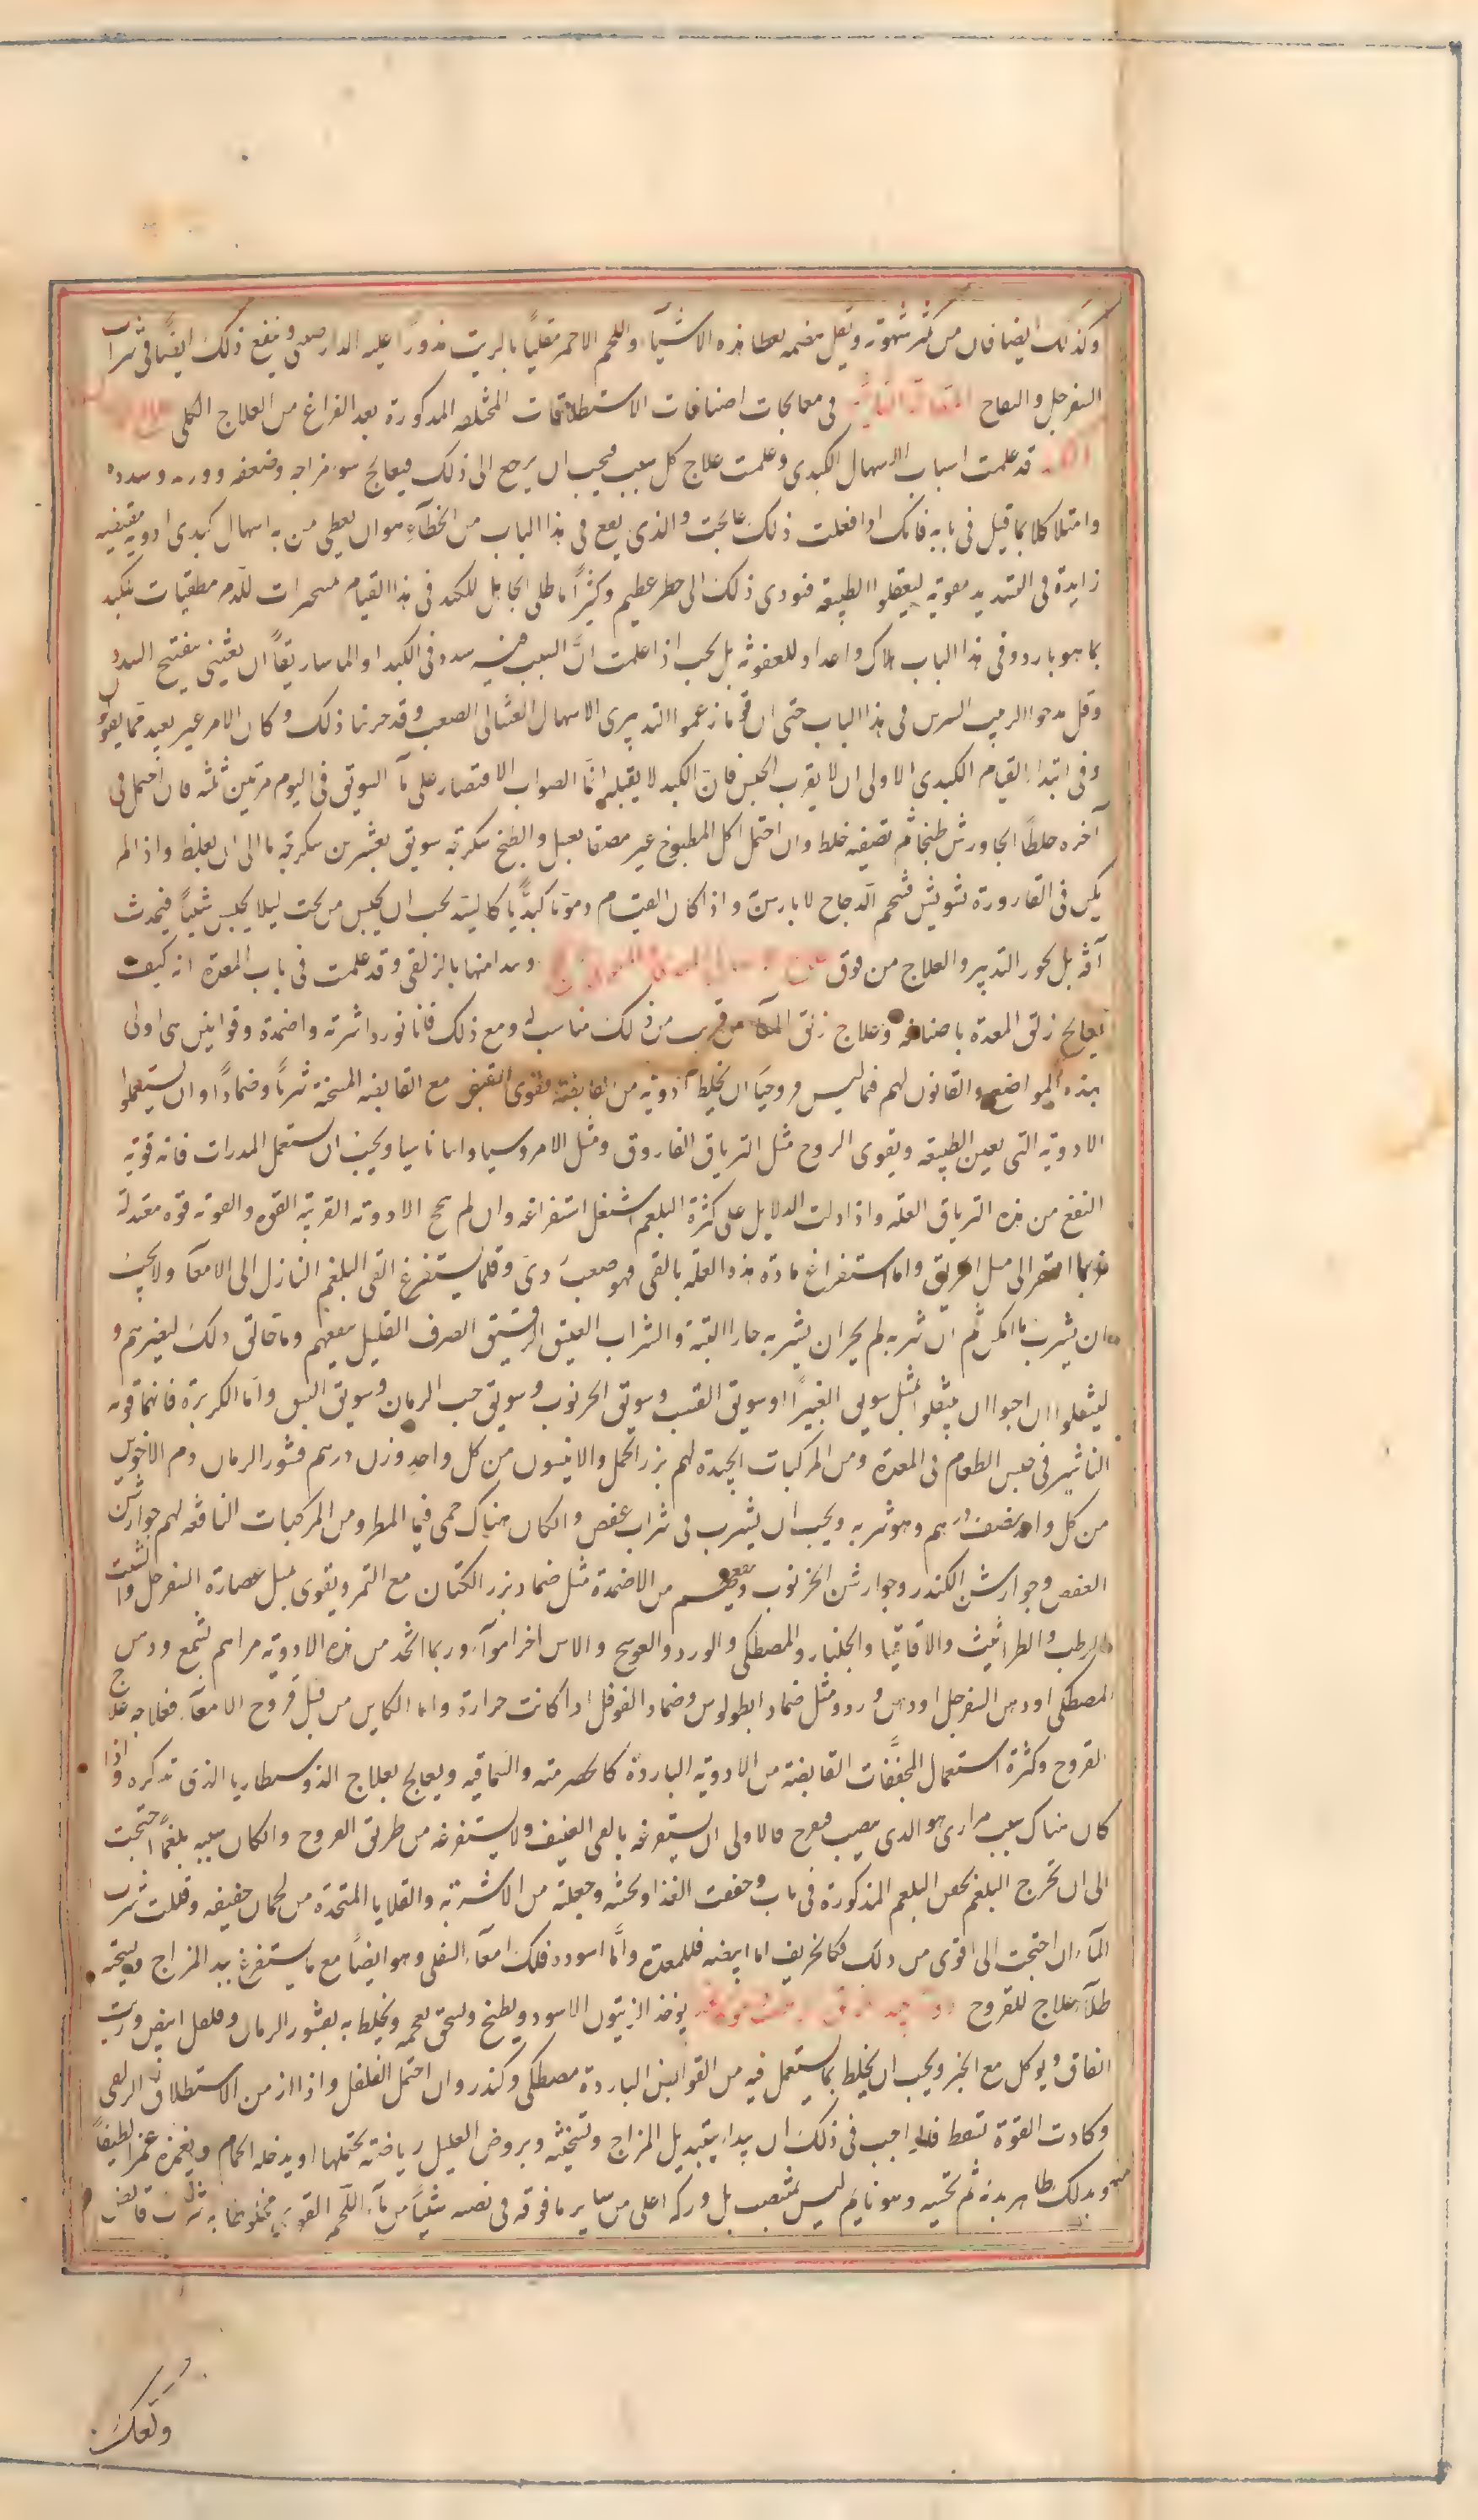 وكذلك ايضا فان من كثر شهوته وثقل هضمه يعطا هذه الاشيآء واللحم الاحمر مقليًا بالزيت مذورًا عليه الدارصينى وينفع ذلك ايضًا فى شراب
السفرجل والتفاح المقالة الثانية فى معالجات اصنافات الاستطلاقات المختلفه المذكورة بعد الفراغ من العلاج الكلى
قد علمت اسباب الاسهال الكبدى وعلمت علاج كل سبب فيجب ان يرجع الى ذلك فيعالج سوء مزاجه وضعفه وورمه وسدده
وامتلا كلا بما قيل فى بابه فانك اذا فعلت ذلك عالجت والذى يقع فى هذا الباب من الخطآء هو ان يعطى من به اسهال كبدى ادوية مقبضه
زايدة فى التسديد مقويه ليعقلوا الطبيعه فيودى ذلك الى خطر عظيم وكثيرًا ما طلى الجاهل للكبد فى هذا القيام مبردات للدم مطفيات للكبد
بما هو بارد وفى هذا الباب هلاك واعداد للعفونه بل يجب اذا علمت انّ السبب فيه سدد فى الكبد او الماساريقا ان يعتنى بتفتيح السدد
وقل مدحوا الزبيب فى هذا الباب حتى ان قوما زعموا انه يبرى الاسهال الغسالى الصعب وقد جربنا ذلك وكان الامر غير بعيد مما يقولو
وفى ابتداء القيام الكبدى الاولى ان لا يقرب الحبس فان الكبد لا يقبله انما الصواب الاقتصار على مآ السويق فى اليوم مرتين ثلثه فان احتمل فى
آخره خلطًا الجاورش طبخًا ثم تصفيه خلط وان احتمل اكل المطبوخ غير مصفا فعل والطبخ سكرجه سويق بعشرين سكرجه ما الى ان يغلظ واذا لم
يكن فى القارورة تشويش فشحم الدجاج لا باس به واذا كان القيام دمويا كبديًا كاليد يجب ان يحبس من تحت ليلا يحبس شيئًا فيحدث
آفه بل يجود التدبير والعلاج من فوق علاج الاسهال المعدى المعوى ونبدا منها بالزلقى وقد علمت فى باب المعدة انه كيف
يعالج زلق المعدة باصنافه وعلاج زلق الامعآ قريب من ذلك مناسب له ومع ذلك فانا نورد اشربة واضمدة وقوانين هى اولى
بهذه المواضع والقانون لهم فيما ليس قروحيًا ان يخلط ادوية من القابضه مع القابضه المسخنه شربًا وضمادًا وان يستعملوا
الادوية التى يعين الطبيعه ويقوى الروح مثل الترياق الفاروق ومثل الامروسيا واثاناسيا ويجب ان يستعمل المدرات فانه قوية
النفع من هذه العلّة واذا دلت الدلايل على كثرة البلغم اشتغل استفراغه وان لم ينجح الادوية القريبة القوة والقوية قوة معتدلة
فربما افتقر الى مثل الخربق واما استفراغ مادة هذه العلّة بالقى فهو صعب ردى وقلما يستفرغ القى البلغم النازل الى الامعآ ولا يجب
ان يشرب ما امكن ثم ان شربه لم يجز ان يشربه حارا البتة والشراب العتيق الرقيق الصرف القليل ينفعهم وما خالف ذلك ليضرهم و
ليتنقلوا ان احبوا ان يتنقلوا بمثل سويق الغبيرا او سويق القسب وسويق الخرنوب وسويق حب الرمان وسويق النبق واما الكزبرة فانها قوية
التاثير فى حبس الطعام فى المعدة ومن المركبات الجيدة لهم بزر الحمل والانيسون من كل واحد وزن درهم قشور الرمان دم الاخوين
من كل واحد نصف درهم وهو شربه ويجب ان يشرب فى شراب عفص وان كان هناك حمى فبما المطر ومن المركبات النافعه لهم جوارشن
العفص وجوارشن الكندر وجوارشن الخرنوب وينفعهم من الاضمدة مثل ضماد بزر الكتان مع التمر ويقوى بمثل عصارة السفرجل والشبت
الرطب والطراثيث والاقاقيا والجلنار والمصطكى والورد والعوسج والاس اجزا سوآء وربما اتخذ من هذه الادويه مراهم بشمع ودهن
المصطكى او دهن السفرجل او دهن ورد ومثل ضماد ابطولوس وضماد الفوفل اذا كانت حرارة واما الكاين من قبل قروح الامعآ فعلاجه علاج
القروح وكثرة استعمال المجففات القابضه من الادويه الباردة كالحصرميه والسماقيه ويعالج بعلاج الذوسنطاريا الذى نذكره واذا
كان هناك سبب مرارى هو الذى يصب فيقرح فالاولى ان يستفرغه بالقى العنيف ولا يستفرغه من طريق القروح وان كان سببه بلغمًا احتجت
الى ان تخرج البلغم بحقن البلغم المذكورة فى باب وخففت الغذا وسخنته وجعلته من الاشربة والقلايا المتخذة من لحمان خفيفه وقللت شرب
المآء ان احتجت الى اقوى من ذلك فكالخريف اما ابيضه فللمعدة وامّا اسوده فلتلك امعآء السفلى وهو ايضًا مع ما يستفرغ يبدل المزاج ويسخنه
طلآء علاج للقروح يوخذ الزيتون الاسود ويطبخ ويسحق بعجمه ويخلط به بقشور الرمان وفلفل ابيض وزيت
انفاق ويوكل مع الخبز ويجب ان يخلط بما يستعمل فيه من القوابض الباردة مصطكى وكندر وان احتمل الفلفل واذا ازمن الاستطلاق الزلقى
وكادت القوة تسقط فلا احب فى ذلك ان يبداء بتبديل المزاج وتسخينه ويروض العليل رياضة يحتملها او يدخله الحمام ويغمزه غمزًا لطيفًا
ويدلك ظاهر بدنه ثم تحسيه وهو نايم ليس بمنتصب بل وركه اعلى من ساير ما فوقه فى نصبه شيئًا من مآء اللحم القوى مخلوطا به شراب قابض
وتعلك